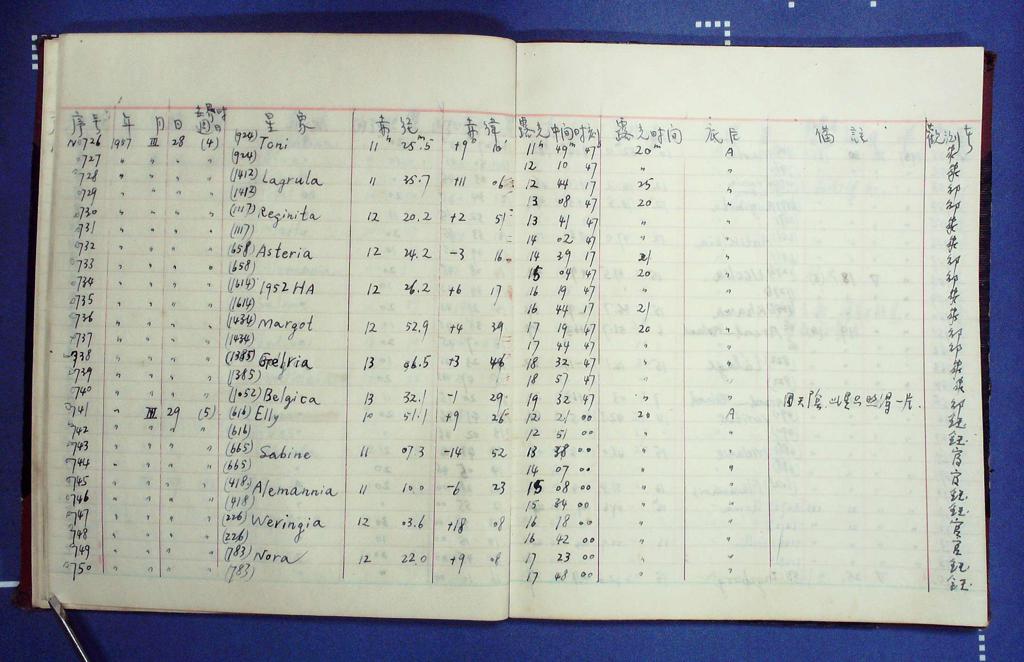 序号 年 月 日 星象 赤经 赤緯 露光中間时刻 露光时间 底片 備註 觀測者
№0726 1957 III 28 (4) (924) Toni 11ʰ 25.5ᵐ +9° 10' 11ʰ 49ᵐ 47 20ᵐ A
0727 " " " " (924) 12 10 47 " "
0728 " " " " (1412) Lagrula 11 35.7 +11 06 12 44 17 25 "
0729 " " " " (1412) 13 08 47 20 "
0730 " " " " (1117) Reginita 12 20.2 +2 51 13 41 47 " "
0731 " " " " (1117) 14 02 47 " "
0732 " " " " (658) Asteria 12 24.2 -3 16 14 39 17 21 "
0733 " " " " (658) 15 04 47 20 "
0734 " " " " (1614) 1952 HA 12 26.2 +6 17 16 19 47 " "
0735 " " " " (1614) 16 44 17 21 "
0736 " " " " (1434) Margot 12 52.9 +4 39 17 19 47 20 "
0737 " " " " (1434) 17 44 47 " "
0738 " " " " (1385) Gelria 13 06.5 +3 46 18 32 47 " "
0739 " " " " (1385) 18 57 47 " "
0740 " " " " (1052) Belgica 13 32.1 -1 29 19 32 47 " " 因天陰.此星只照得一片.
0741 " III 29 (5) (616) Elly 10 51.1 +9 26 12 21 00 20 A
0742 " " " " (616) 12 51 00 " "
0743 " " " " (665) Sabine 11 07.3 -14 52 13 38 00 " "
0744 " " " " (665) 14 07 00 " "
0745 " " " " (418) Alemannia 11 10.0 -6 23 15 08 00 " "
0746 " " " " (418) 15 34 00 " "
0747 " " " " (226) Weringia 12 03.6 +18 08 16 18 00 " "
0748 " " " " (226) 16 42 00 " "
0749 " " " " (783) Nora 12 22.0 +9 08 17 23 00 " "
0750 " " " " (783) 17 48 00 " "